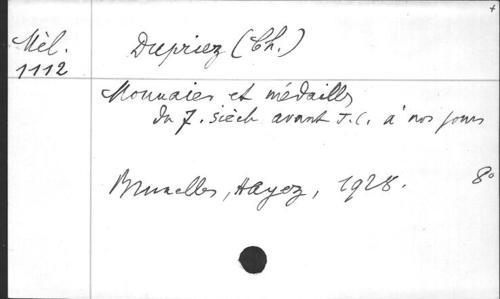 Mèl. 1112
Dupriez (Ch.)
Monnaies et médailles
du 7. siècle avant J.C. à nos jours
Bruxelles, Hayez, 1928. 8°